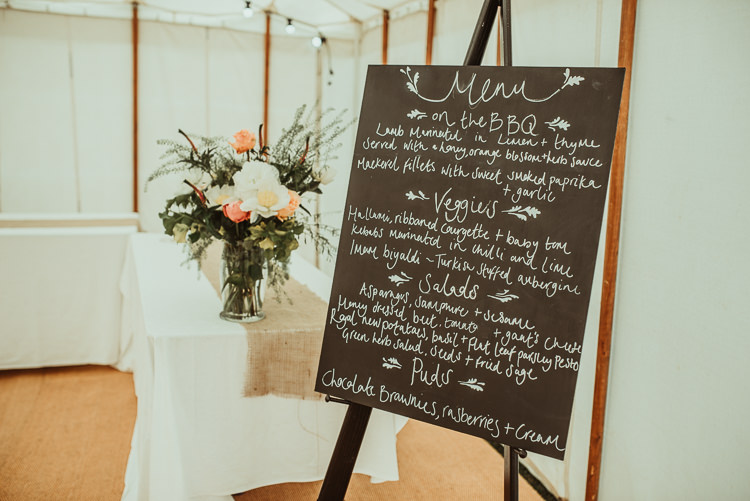 Menu
on the BBQ
Lamb Marinated in Lemon + thyme
served with a honey, orange blossom + herb sauce
Mackerel fillets with sweet smoked paprika
+ garlic
Veggie's
Halloumi, ribboned courgette + baby tom
Kebabs marinated in chilli and lime
Imam biyaldi ~ Turkish stuffed aubergine
Salads
Asparagus, samphire + sesame
Honey dressed, beet, tomato + goat's cheese
Royal new potatoes, basil + flat leaf parsley pesto
Green herb salad, seeds + fried sage
Puds
Chocolate Brownies, rasberries + Cream